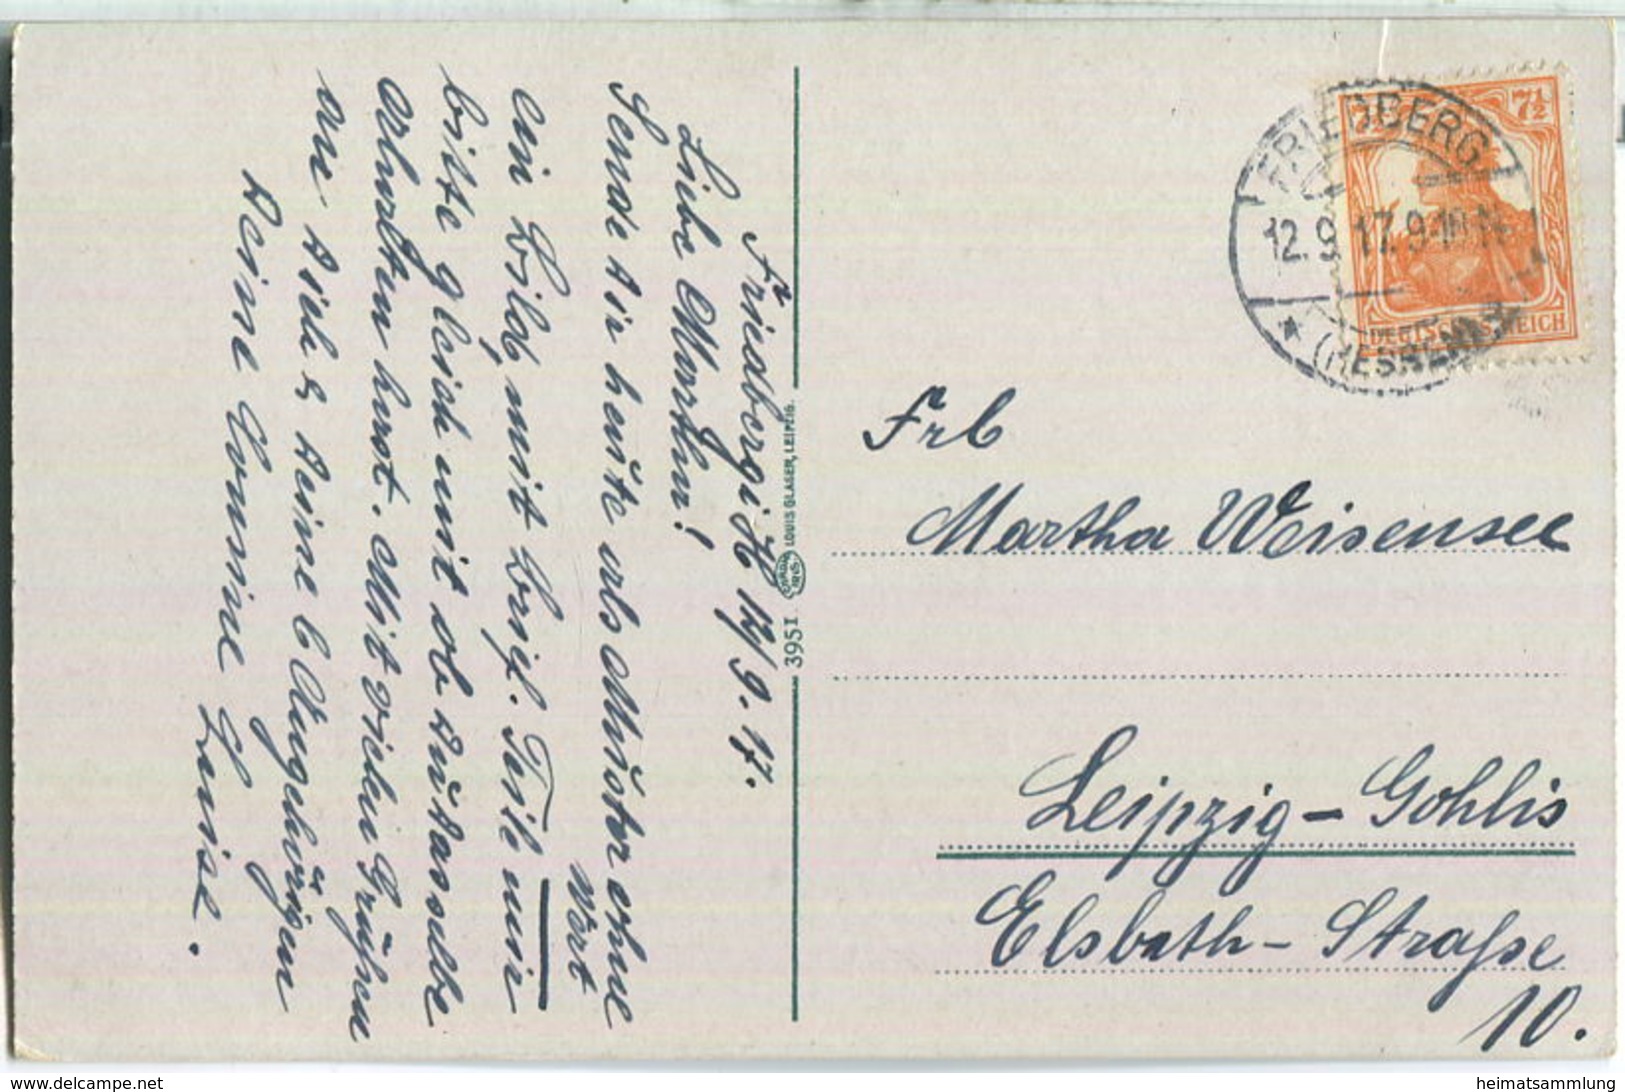 Friedberg i H 12/9. 17.
Liebe Martha!
Sende dir heute als Muster ohne
Wert
ein Bild, mit Brief. Teile mir
bitte gleich mit ob du dasselbe
erhalten hast. Mit vielen Grüßen
an dich & deine l Angehörigen
deine Cousine Luise.
395I
LOUIS GLASER, LEIPZIG.
FRIEDBERG
12.9.17.9-10 N
* (HESSEN)
7½
7½
DEUTSCHES REICH
Frl
Martha Weisensee
Leipzig-Gohlis
Elsbeth-Straße
10.
www.delcampe.net
heimatsammlung